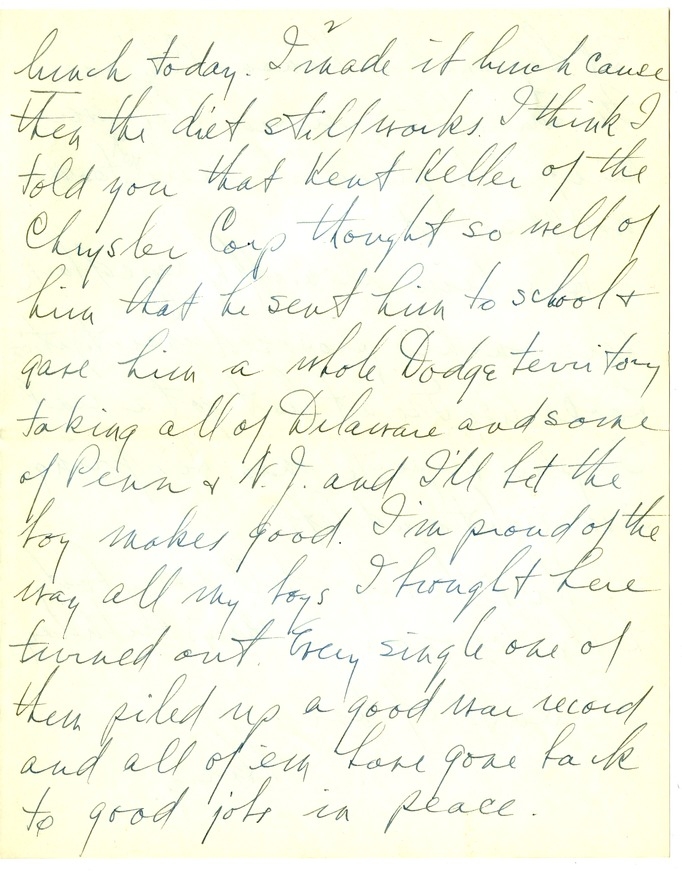 2
lunch today. I made it lunch cause
then the diet still works. I think I
told you that Kent Keller of the
Chrysler Corp thought so well of
him that he sent him to school &
gave him a whole Dodge territory
taking all of Delaware and some
of Penn & N.J. and I'll bet the
boy makes good. I'm proud of the
way all my boys I brought here
turned out. Every single one of
them piled up a good war record
and all of 'em have gone back
to good jobs in peace.